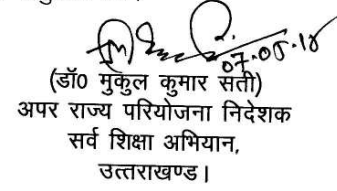 07.05.18
(डॉ0 मुकुल कुमार सती)
अपर राज्य परियोजना निदेशक
सर्व शिक्षा अभियान,
उत्तराखण्ड।